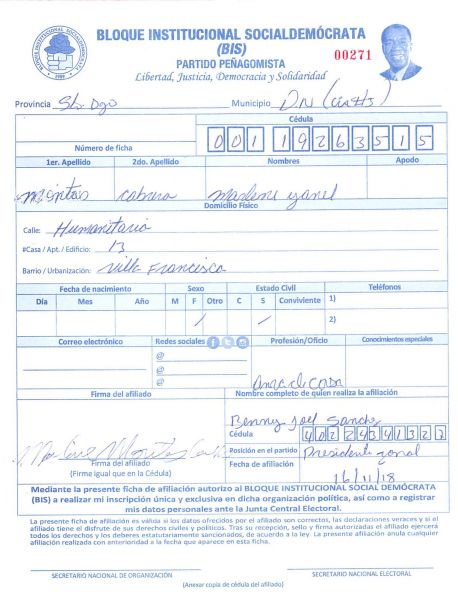 BLOQUE INSTITUCIONAL SOCIALDEMÓCRATA
(BIS)
PARTIDO PEÑAGOMISTA
00271
Libertad, Justicia, Democracia y Solidaridad
Provincia Sto. Dgo Municipio D.N
Cédula
Número de ficha 001 1926351 5
1er. Apellido 2do. Apellido Nombres Apodo
Montas Cabrera Marlene Yanel
Domicilio Físico
Calle: Humanitaria
#Casa / Apt. / Edificio: 13
Barrio / Urbanización: Villa Francisca
Fecha de nacimiento Sexo Estado Civil Teléfonos
Día Mes Año M F Otro C S Conviviente 1)
/ / 2)
Correo electrónico Redes sociales Profesión/Oficio Conocimientos especiales
@
@
@ Ama de Casa
Firma del afiliado Nombre completo de quien realiza la afiliación
Benny Joel Sanche
Cédula 402 2434132 2
Posición en el partido Presidente zonal
Firma del afiliado
(Firme igual que en la Cédula)
Fecha de afiliación 16/11/18
Mediante la presente ficha de afiliación autorizo al BLOQUE INSTITUCIONAL SOCIAL DEMÓCRATA
(BIS) a realizar mi inscripción única y exclusiva en dicha organización política, así como a registrar
mis datos personales ante la Junta Central Electoral.
La presente ficha de afiliación es válida si los datos ofrecidos por el afiliado son correctos, las declaraciones veraces y si el
afiliado tiene el disfrute de sus derechos civiles y políticos. Tras su recepción, sello y firma autorizadas el afiliado ejercerá
todos los derechos y los deberes estatutariamente sancionados, de acuerdo a la ley. La presente afiliación anula cualquier
afiliación realizada con anterioridad a la fecha que aparece en esta ficha.
SECRETARIO NACIONAL DE ORGANIZACIÓN SECRETARIO NACIONAL ELECTORAL
(Anexar copia de cédula del afiliado)